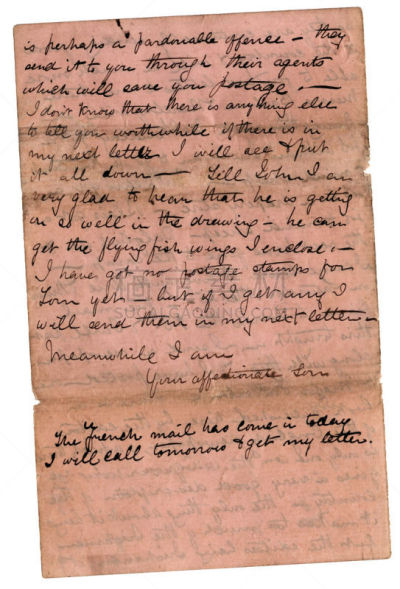 is perhaps a pardonable offence – they
send it to you through their agents
which will save you postage. –
I don't know that there is anything else
to tell you worth while if there is in
my next letter I will see & put
it all down – Tell John I am
very glad to hear that he is getting
on so well in the drawing – he can
get the flying fish wings I enclose. –
I have got no postage stamps for
Tom yet – but if I get any I
will send them in my next letter –
Meanwhile I am
Your affectionate Son
The French mail has come in today
I will call tomorrow & get my letter.